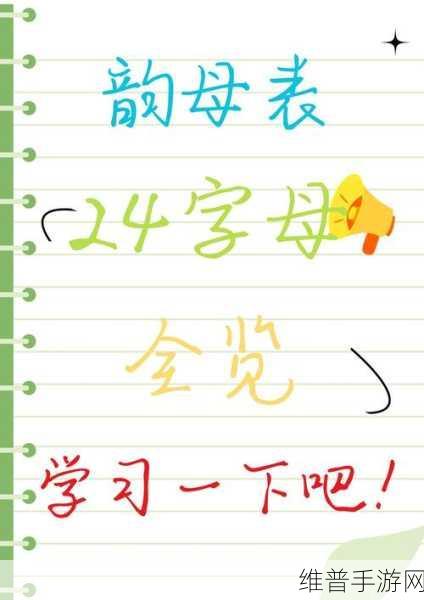 韵母表
24字母
全览
学习一下吧！
维普手游网